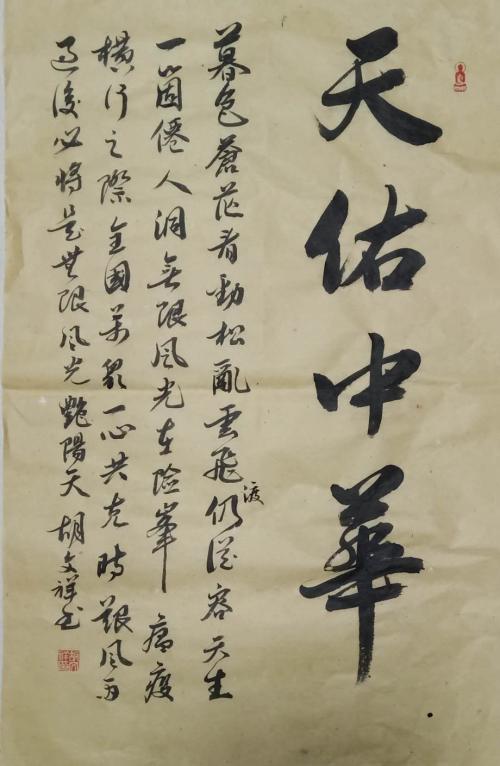 天佑中華
暮色蒼茫看勁松亂雲飛渡仍從容天生
一個僊人洞無限風光在險峯 病疫
橫行之際全國萬眾一心共克時艱風雨
過後必將是無限風光艷陽天 胡文祥书